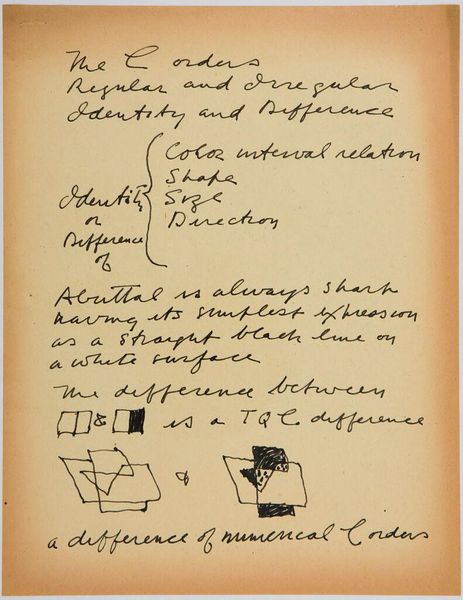 The C orders
Regular and Irregular
Identity and Difference
Color interval relation
Shape
Size
Direction
Identity
or
Difference
of
Abuttal is always sharp
having its simplest expression
as a straight black line on
a white surface
The difference between
& is a TQC difference
&
a difference of numerical C orders